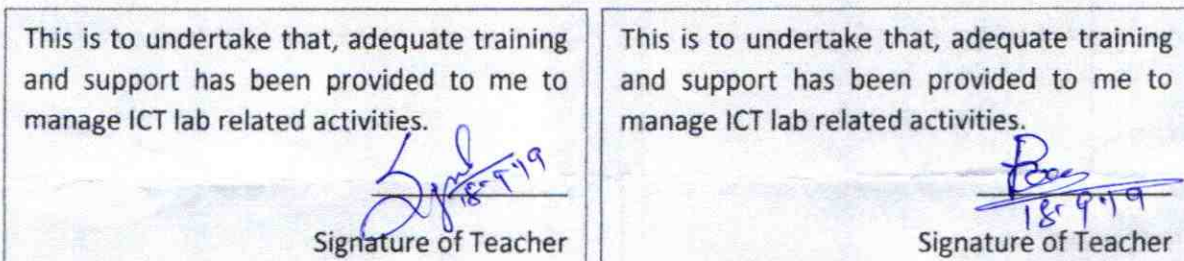 This is to undertake that, adequate training
and support has been provided to me to
manage ICT lab related activities.
18-9-19
Signature of Teacher
This is to undertake that, adequate training
and support has been provided to me to
manage ICT lab related activities.
18-9-19
Signature of Teacher